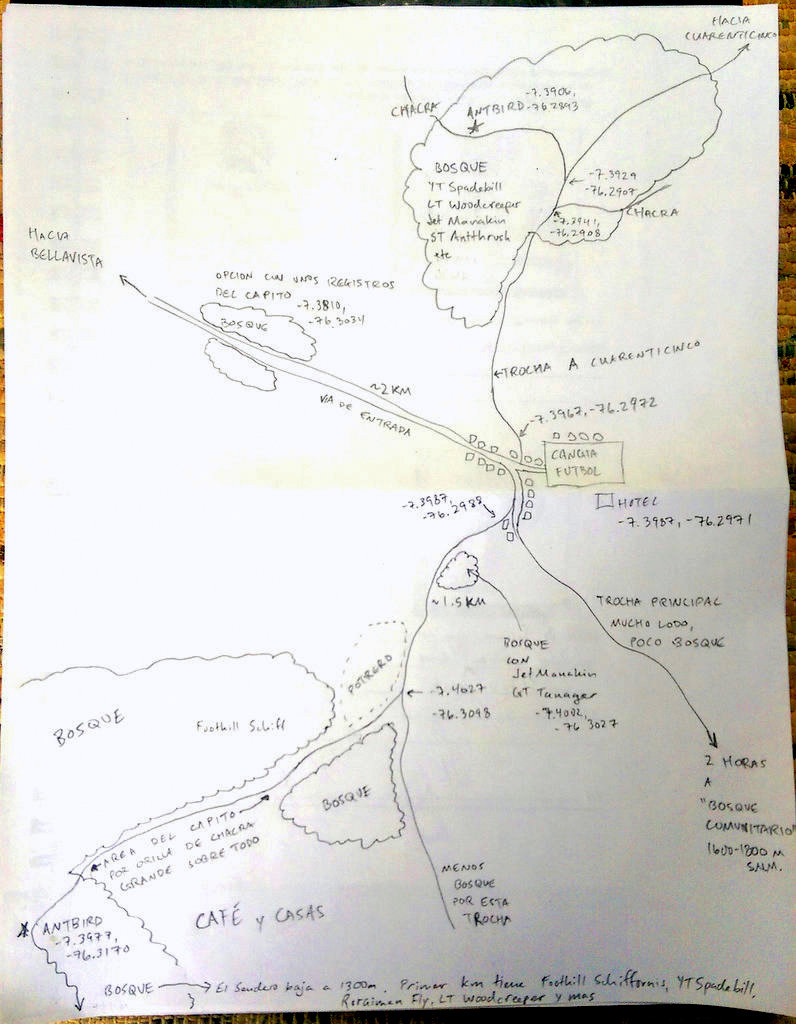 HACIA
CUARENTICINCO
CHACRA
ANTBIRD
-7.3906,
-76.2893
BOSQUE
YT Spadebill
LT Woodcreeper
Jet Manakin
ST Antthrush
etc
-7.3929
-76.2907
CHACRA
-7.3941,
-76.2908
HACIA
BELLAVISTA
OPCION CON UNOS REGISTROS
DEL CAPITO
-7.3810,
-76.3034
BOSQUE
~2 KM
VIA DE ENTRADA
TROCHA A CUARENTICINCO
-7.3967, -76.2972
CANCHA
FUTBOL
HOTEL
-7.3987, -76.2971
-7.3987,
-76.2988
~1.5 KM
TROCHA PRINCIPAL
MUCHO LODO,
POCO BOSQUE
BOSQUE
CON
Jet Manakin
GT Tanager
-7.4002,
-76.3027
POTRERO
-7.4027
-76.3098
BOSQUE
Foothill Schiff
BOSQUE
2 HORAS
A
"BOSQUE
COMUNITARIO"
1600-1800 M
SNM.
AREA DEL CAPITO
POR ORILLA DE CHACRA
GRANDE SOBRE TODO
MENOS
BOSQUE
POR ESTA
TROCHA
CAFÉ y CASAS
ANTBIRD
-7.3977,
-76.3170
BOSQUE
El Sendero baja a 1300m. Primer km tiene Foothill Schiffornis, YT Spadebill,
Roraiman Fly, LT Woodcreeper y mas